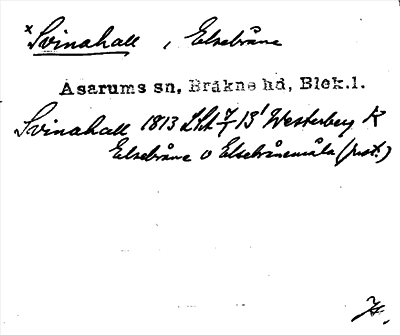 x Svinahall, Elsebråne
Asarums sn, Bräkne hd, Blek.l.
Svinahall 1813 LSA 7/1 13¹ Westerberg K
Elsebråne o Elsebrånemåla (just.)